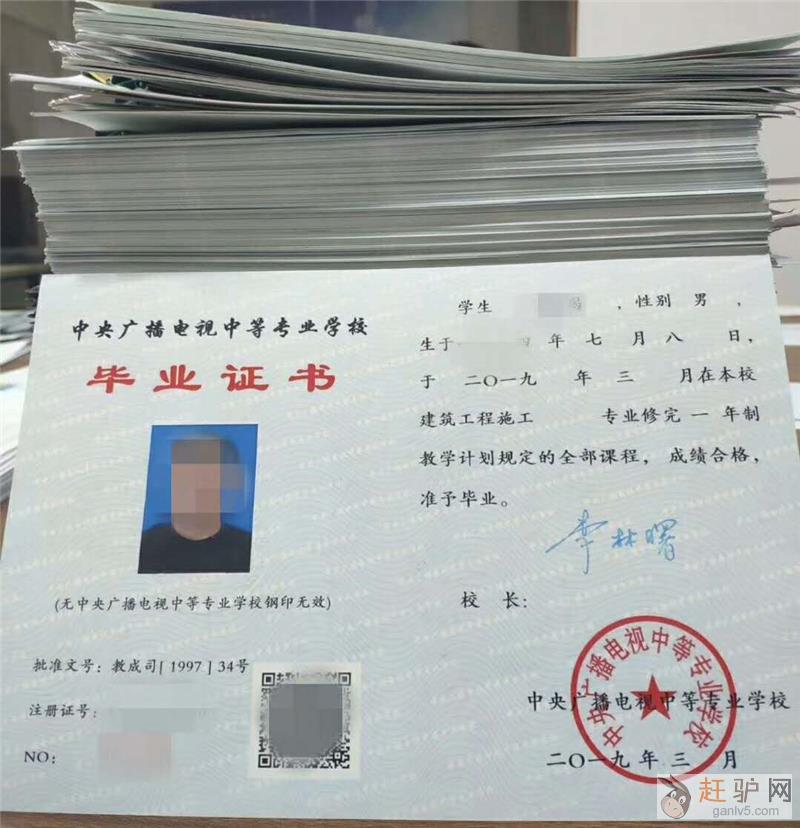 中央广播电视中等专业学校
毕业证书
(无中央广播电视中等专业学校钢印无效)
批准文号:教成司[1997]34号
注册证号:
NO:
学生 ,性别 男 ,
生于 年 七 月 八 日,
于 二〇一九 年 三 月在本校
建筑工程施工 专业修完 一 年制
教学计划规定的全部课程,成绩合格,
准予毕业。
李林曙
校 长:
中央广播电视中等专业学校
中央广播电视中等专业学校
二〇一九 年 三 月
赶驴网
ganlv5.com